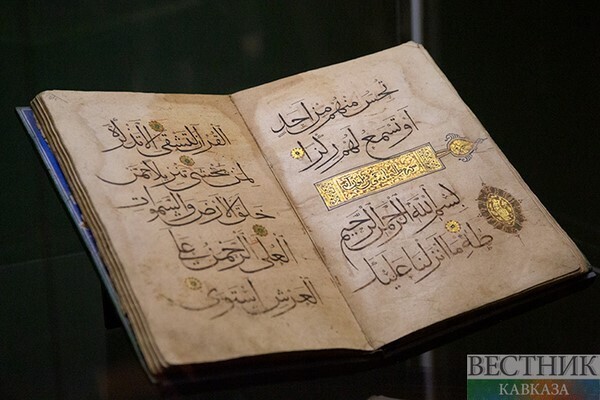 تحس منهم من احد
او تسمع لهم ركزا
بسم الله الرحمن الرحيم
طه ما انزلنا عليك
القران لتشقى الا تذكرة
لمن يخشى تنزيلا ممن
خلق الارض والسموات
العلى الرحمن على
العرش استوى
ВЕСТНИК
КАВКАЗА